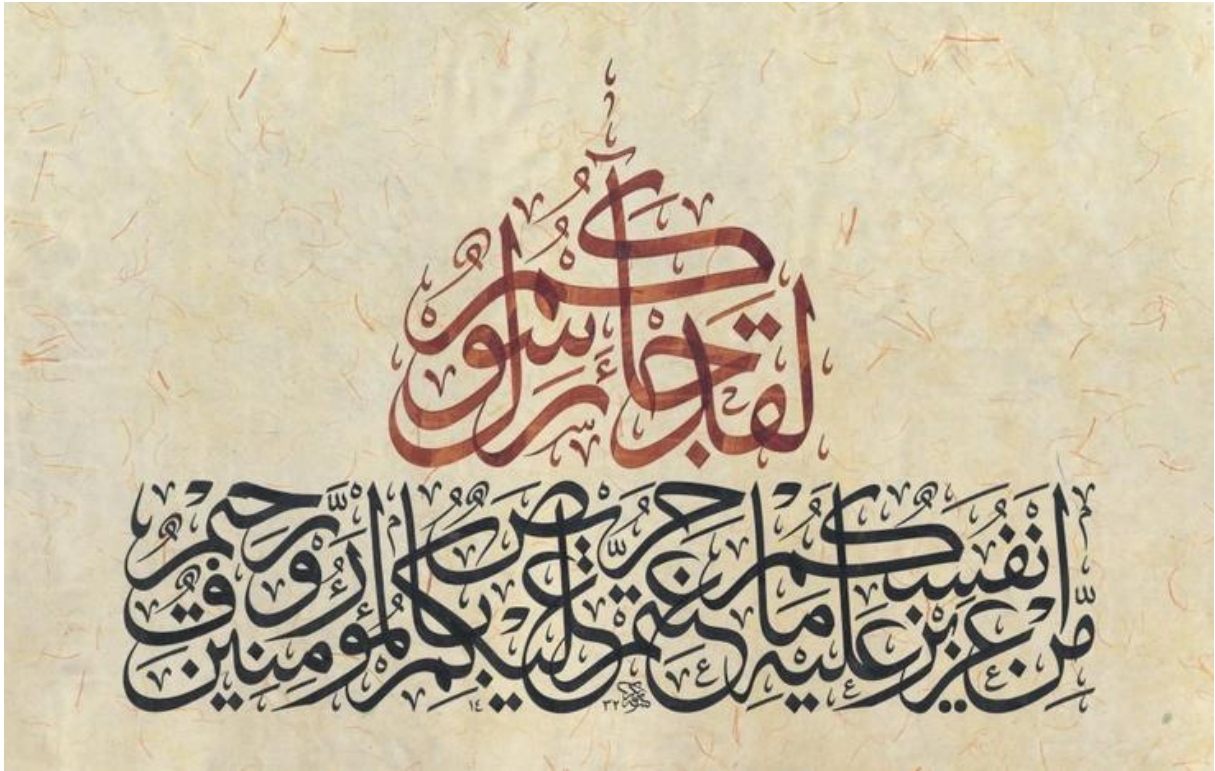 لَقَدْ جَآءَكُمْ رَسُولٌ
مِّنْ أَنفُسِكُمْ عَزِيزٌ عَلَيْهِ مَا عَنِتُّمْ حَرِيصٌ عَلَيْكُم بِالْمُؤْمِنِينَ رَءُوفٌ رَّحِيمٌ
١٤٣٢